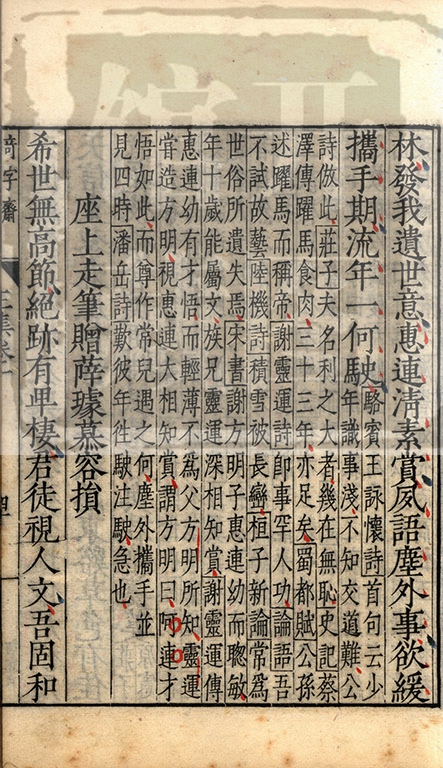 林發我遺世意惠連清素賞夙語塵外事欲緩
攜手期流年一何駛
駱賓王詠懷詩首句云少
年識事淺不知交道難公
詩倣此莊子夫名利之大者幾在無恥史記蔡
澤傳躍馬食肉三十三年亦足矣蜀都賦公孫
述躍馬而稱帝謝靈運詩即事罕人功論語吾
不試故藝陸機詩積雪被長巒桓子新論常爲
世俗所遺失焉宋書謝方明子惠連幼而聰敏
年十歲能屬文族兄靈運深相知賞謝靈運傳
惠連幼有才悟而輕薄不爲父方明所知靈運
嘗造方明視惠連大相知賞謂方明曰阿連才
悟如此而尊作常兒遇之何塵外攜手並
見四時潘岳詩歎彼年徃駛注駛急也
座上走筆贈薛璩慕容損
希世無高節絕跡有卑棲君徒視人文吾固和
奇字齋